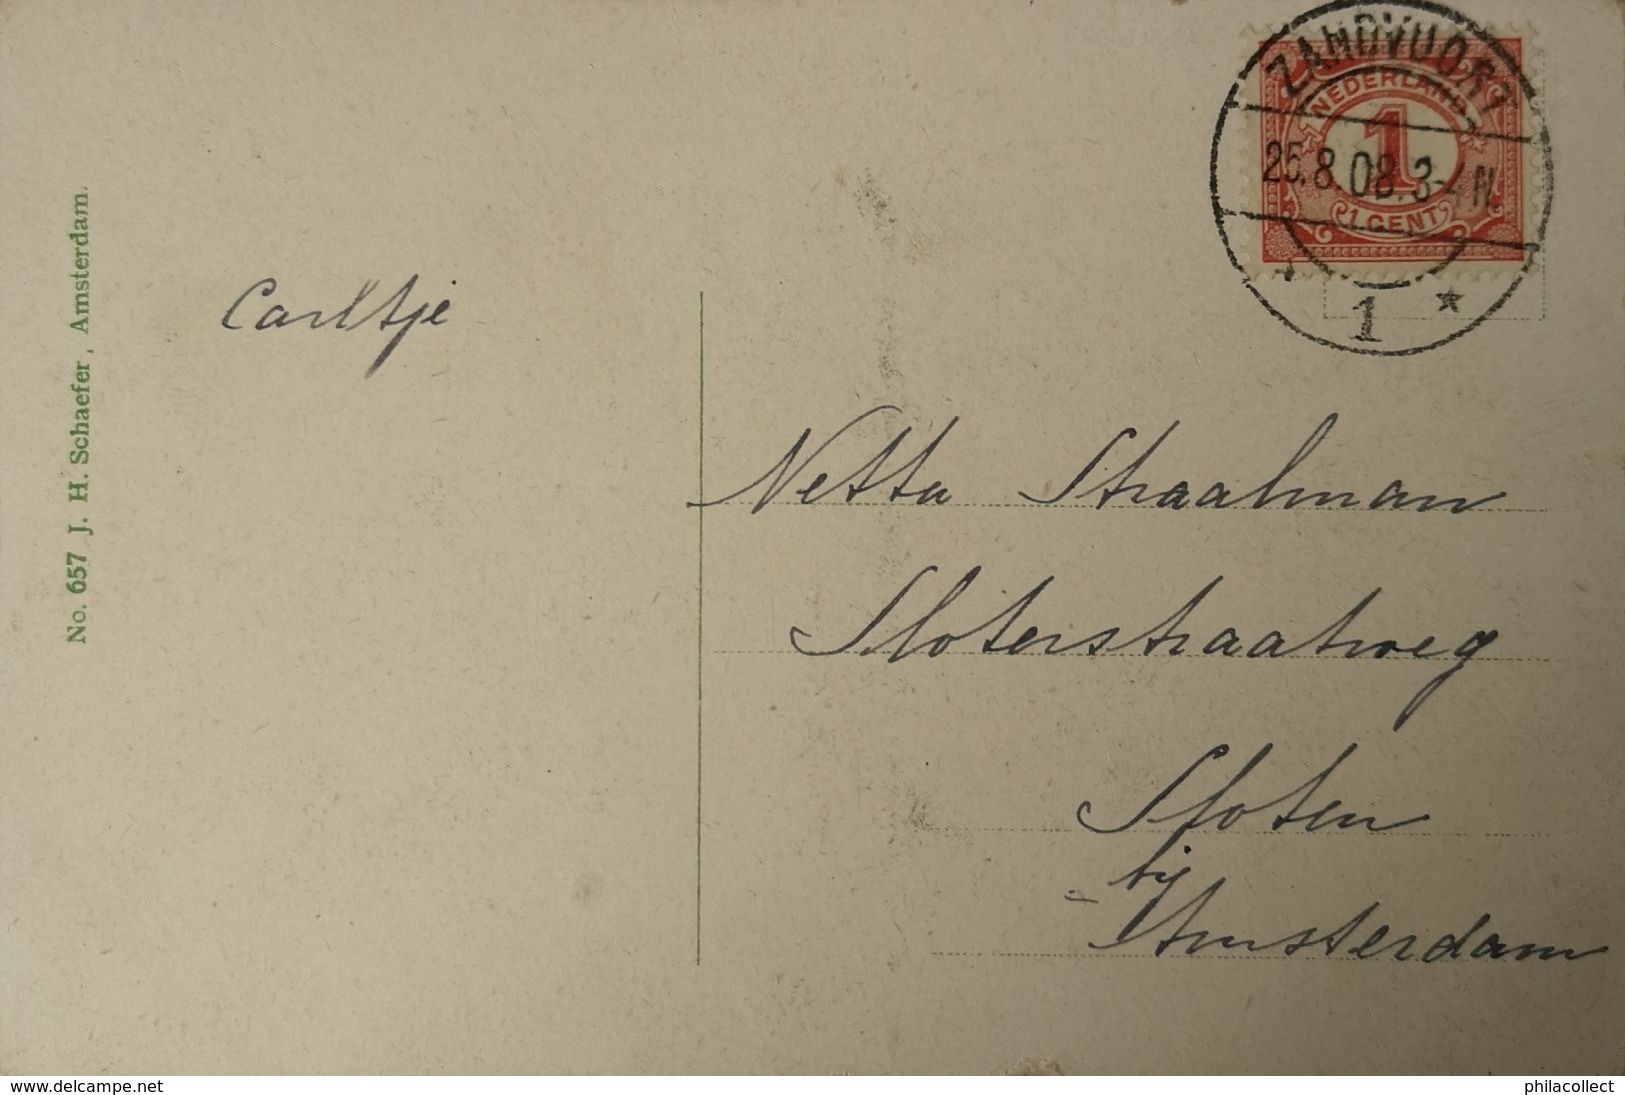 ZANDVOORT
25.8.08.3-4 N.
1
NEDERLAND
1
1 CENT
No. 657 J. H. Schaefer, Amsterdam.
Carltje
Netta Straalman
Sloterstraatweg
Sloten
bij
Amsterdam
www.delcampe.net
philacollect